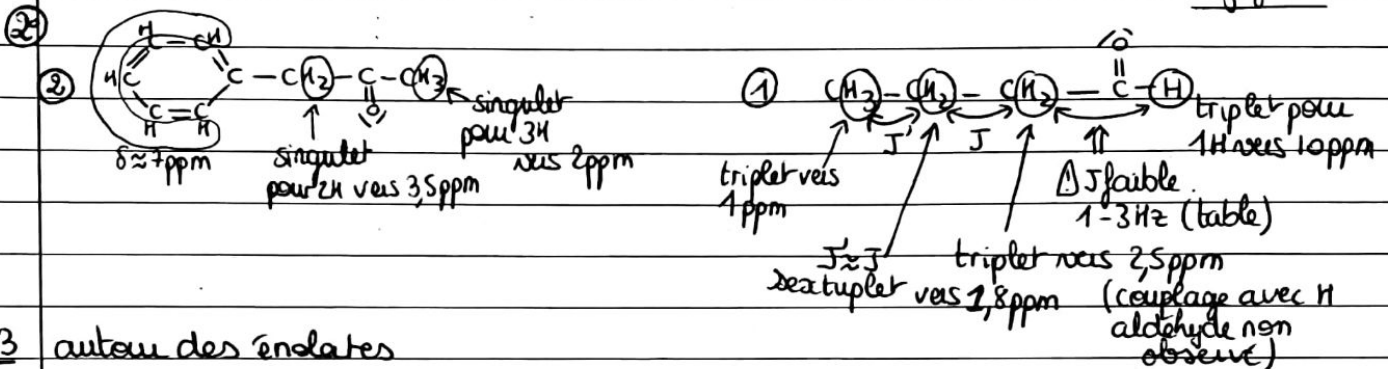 2
② H C – CH
H C C – CH2 – C – CH3
C = C O
H H
δ≈7ppm
singulet
pour 2H vers 3,5ppm
singulet
pour 3H
vers 2ppm
① CH3 – CH2 – CH2 – C – H
O
J' J
triplet vers
1ppm
J'≈J
sextuplet vers 1,8ppm
triplet vers 2,5ppm
(couplage avec H
aldéhyde non
observé)
⚠ J faible.
1-3Hz (table)
triplet pour
1H vers 10ppm
3 autour des énolates